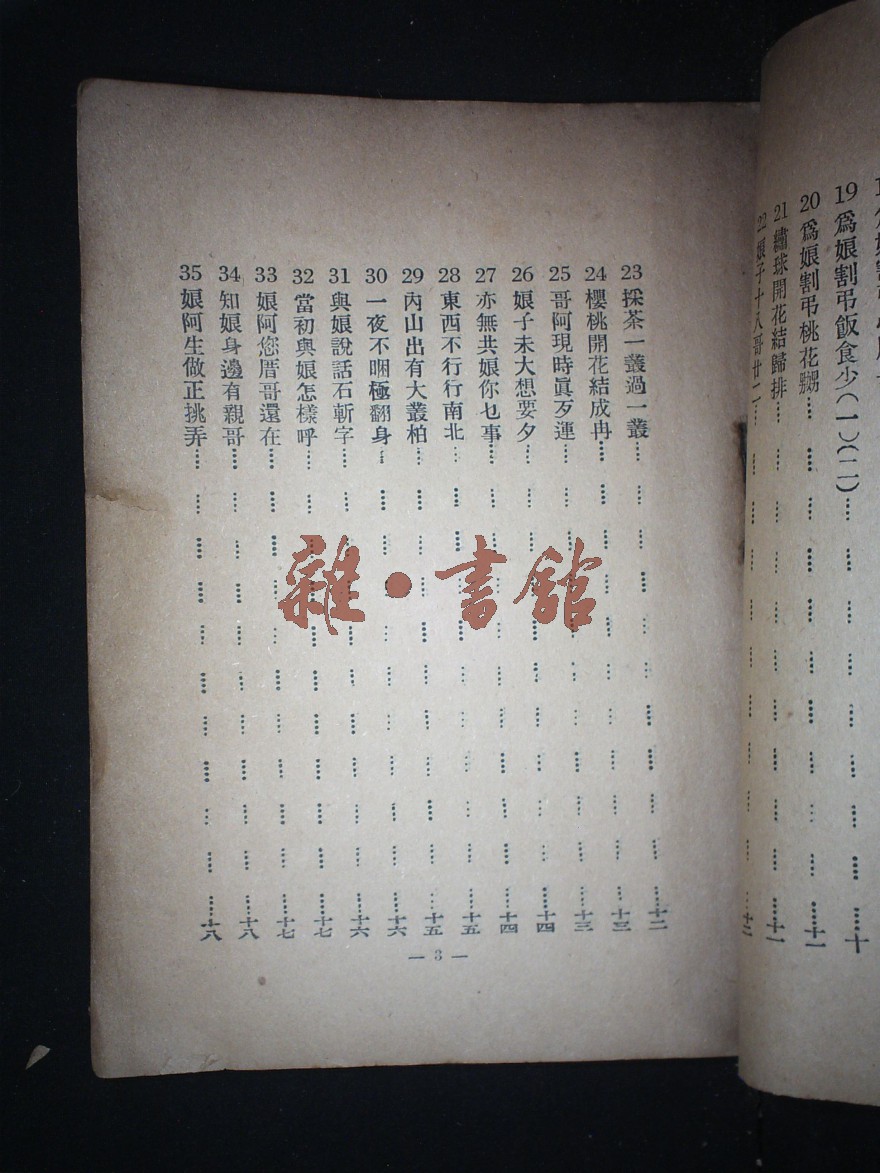 19 爲娘割弔飯食少(一)(二)…………十
20 爲娘割弔桃花嬲…………十一
21 繡球開花結歸排…………十一
22 娘子十八哥廿二…………十二
23 採茶一叢過一叢…………十二
24 櫻桃開花結成冉…………十三
25 哥阿現時眞歹運…………十三
26 娘子未大想要夕…………十四
27 亦無共娘你乜事…………十四
28 東西不行行南北…………十五
29 內山出有大叢柏…………十五
30 一夜不睏極翻身…………十六
31 與娘說話石斬字…………十六
32 當初與娘怎樣呼…………十七
33 娘阿您厝哥還在…………十七
34 知娘身邊有親哥…………十八
35 娘阿生做正挑弄…………十八
— 3 —
雜·書館